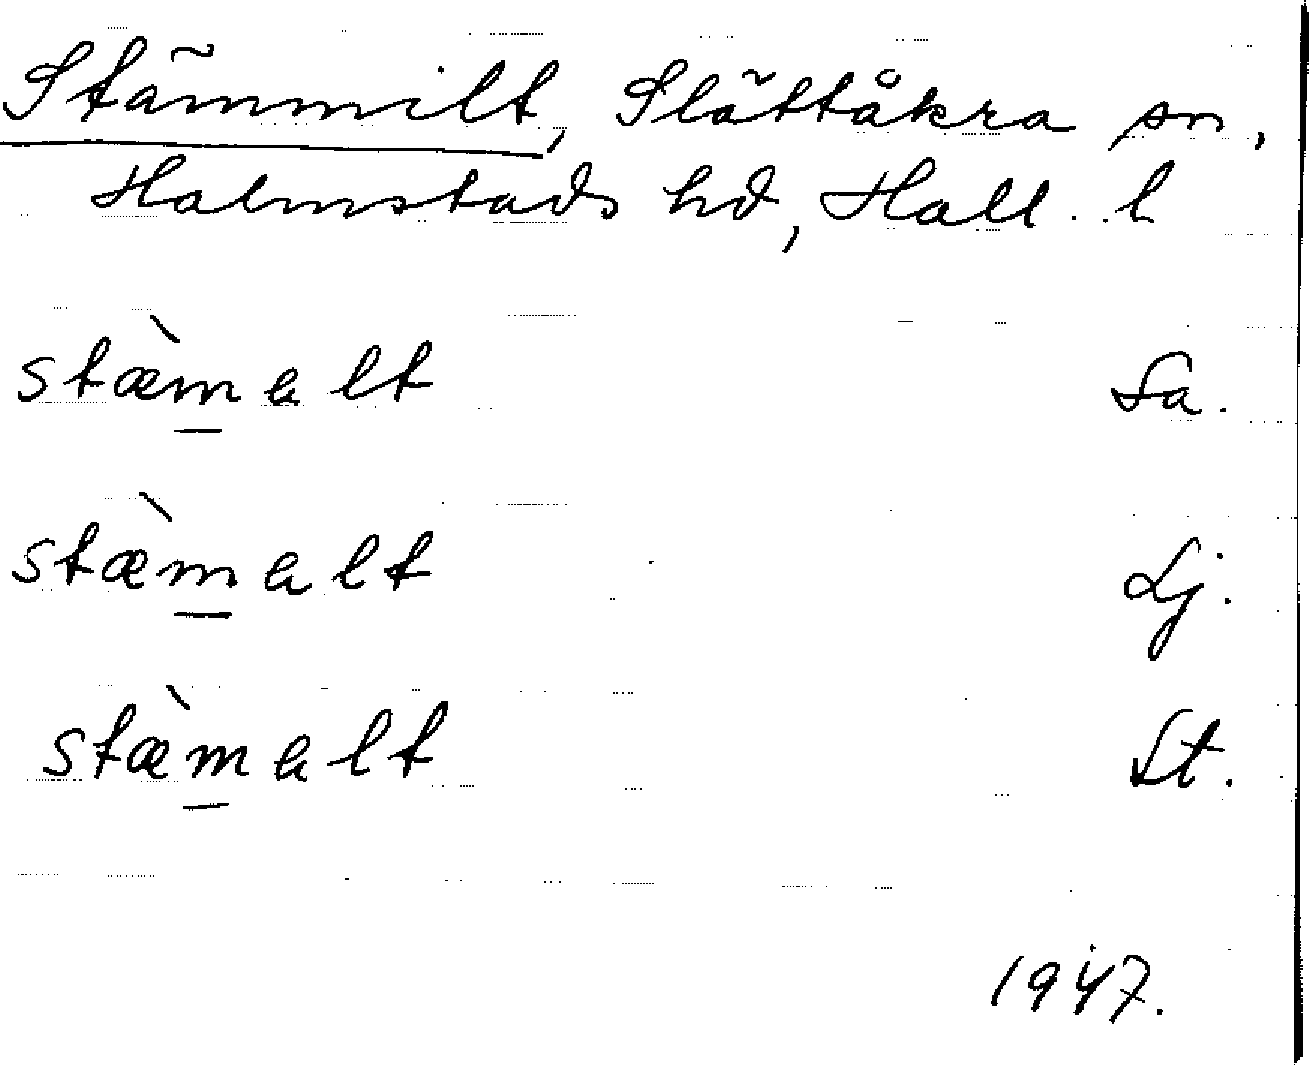 Stämmilt, Slättåkra sn,
Halmstads hd, Hall. l
stæ̀malt Sa.
stæ̀malt Lj.
stæ̀malt St.
1947.